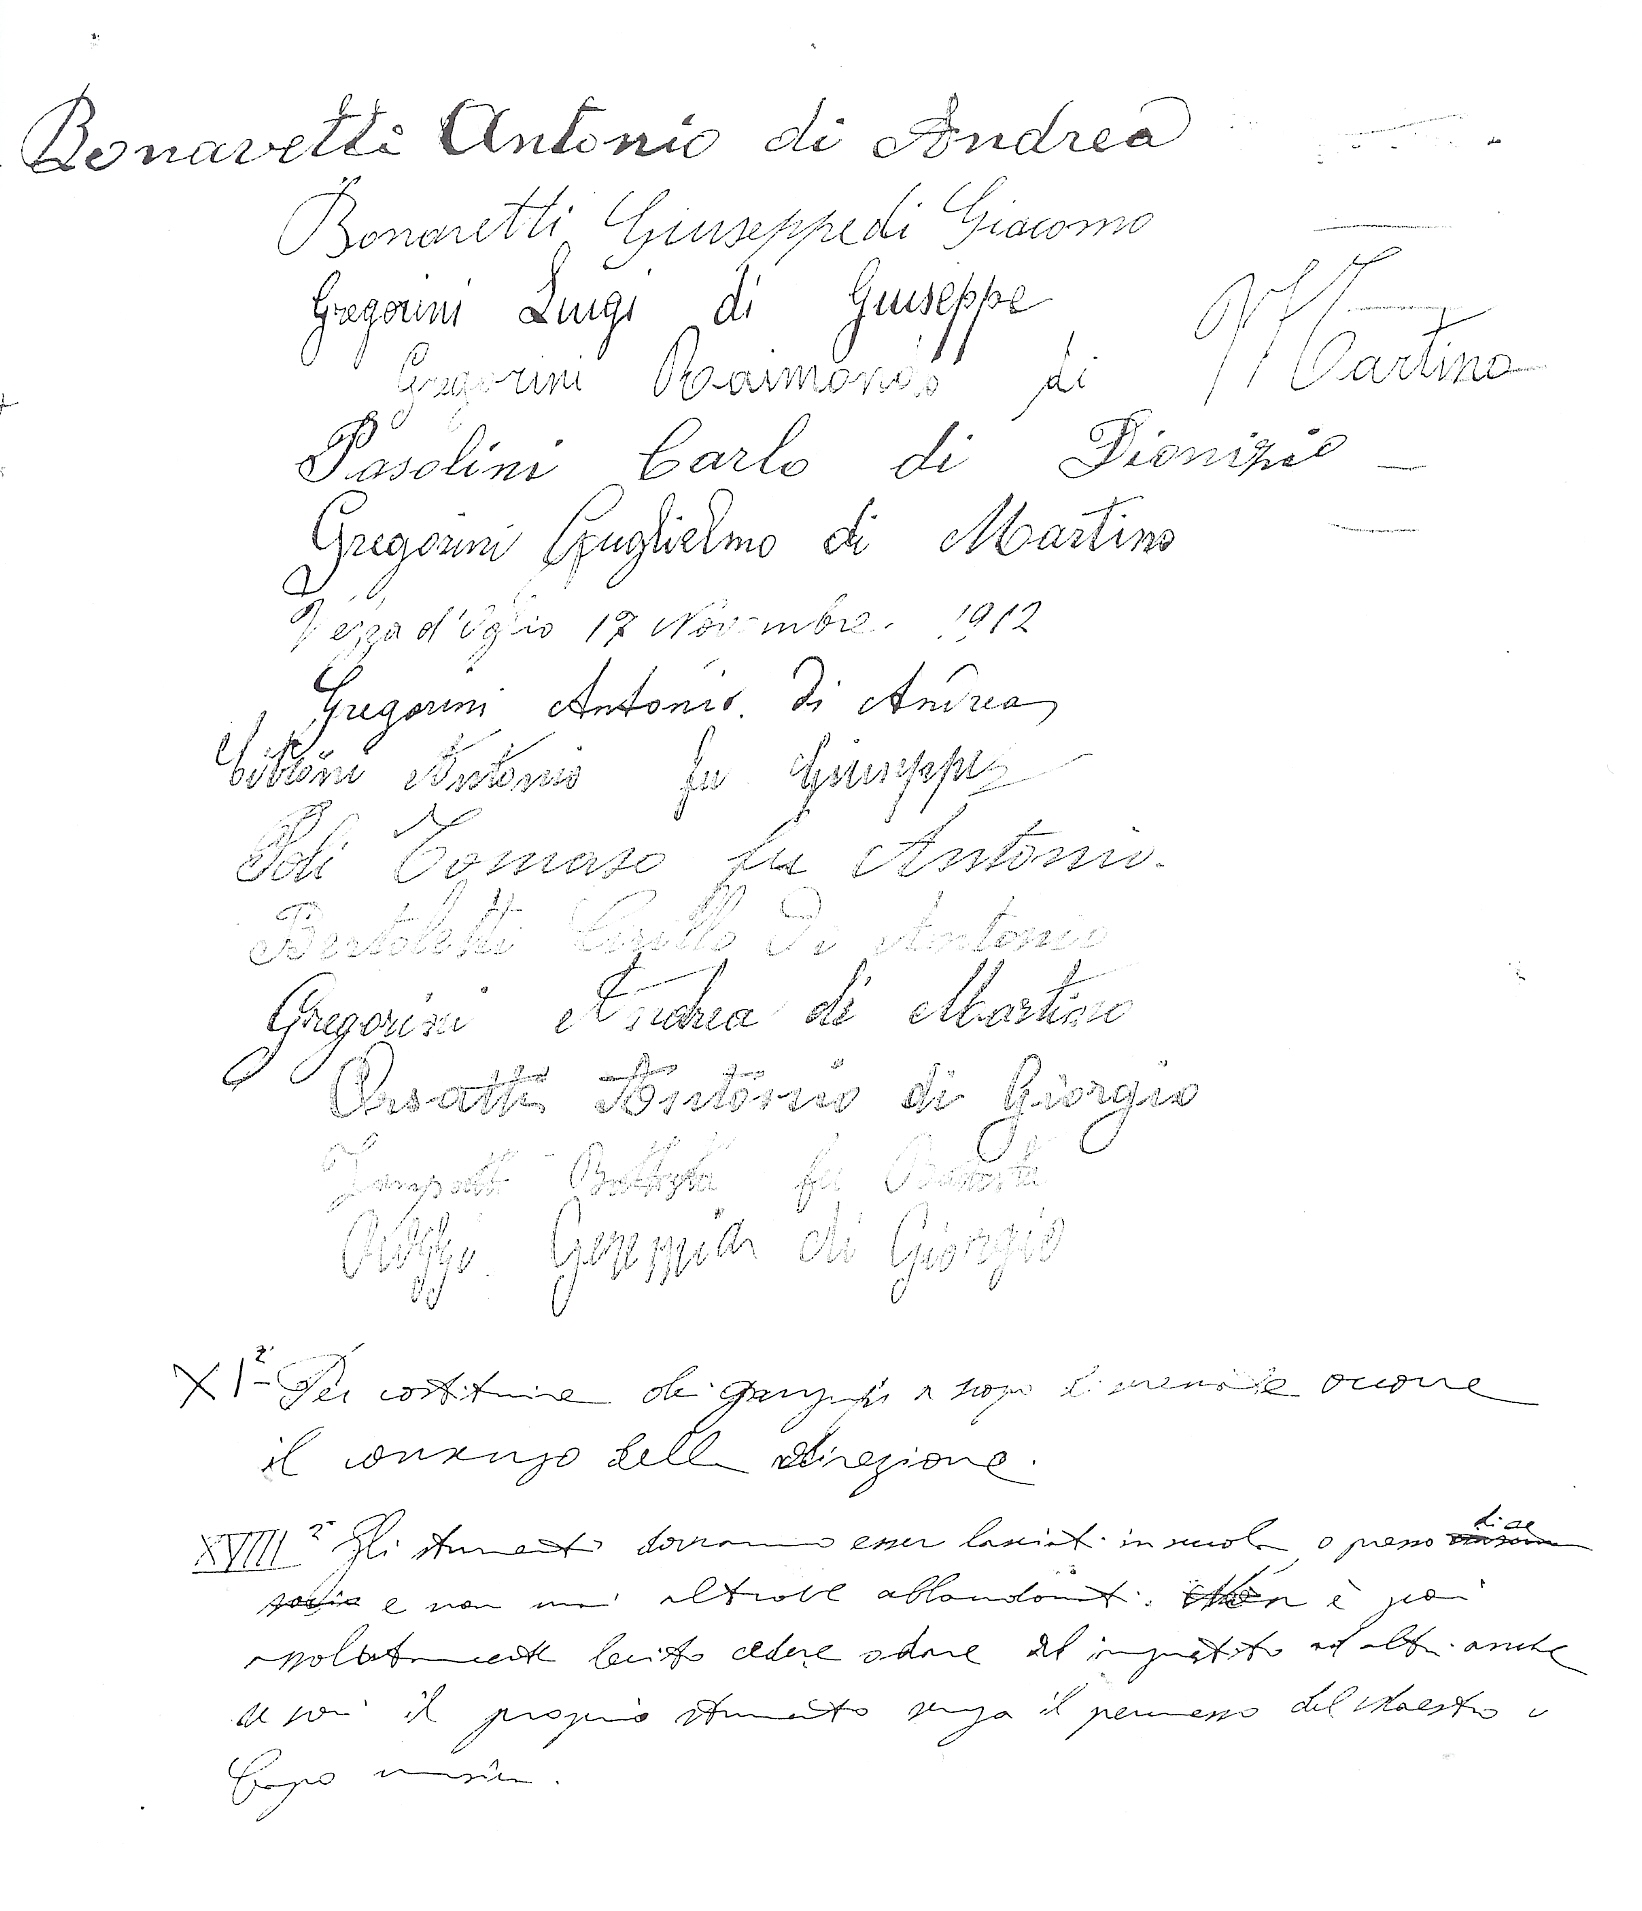 Bonavetti Antonio di Andrea
Bonavetti Giuseppe di Giacomo
Gregorini Luigi di Giuseppe
Gregorini Raimondo di Martino
Pasolini Carlo di Dionizio
Gregorini Guglielmo di Martino
Vezza d'Oglio 17 Novembre. 1912
Gregorini Antonio di Andrea
Antonio fu Giuseppe
Poli Tomaso fu Antonio.
Bertoletti Cirillo di Antonio
Gregorini Andrea di Martino
Orsatti Antonio di Giorgio
Battista fu Battista
di Giorgio
XI° - Per costituire dei a scopo occorre
il consenso della direzione.
XVIII° Gli strumenti dovranno esser lasciati in scuola o presso di se
e non mai altrove abbandonati. Non è poi
assolutamente lecito cedere o dare ad imprestito ad altri anche
se soci il proprio strumento senza il permesso del Maestro o
Capo musica.